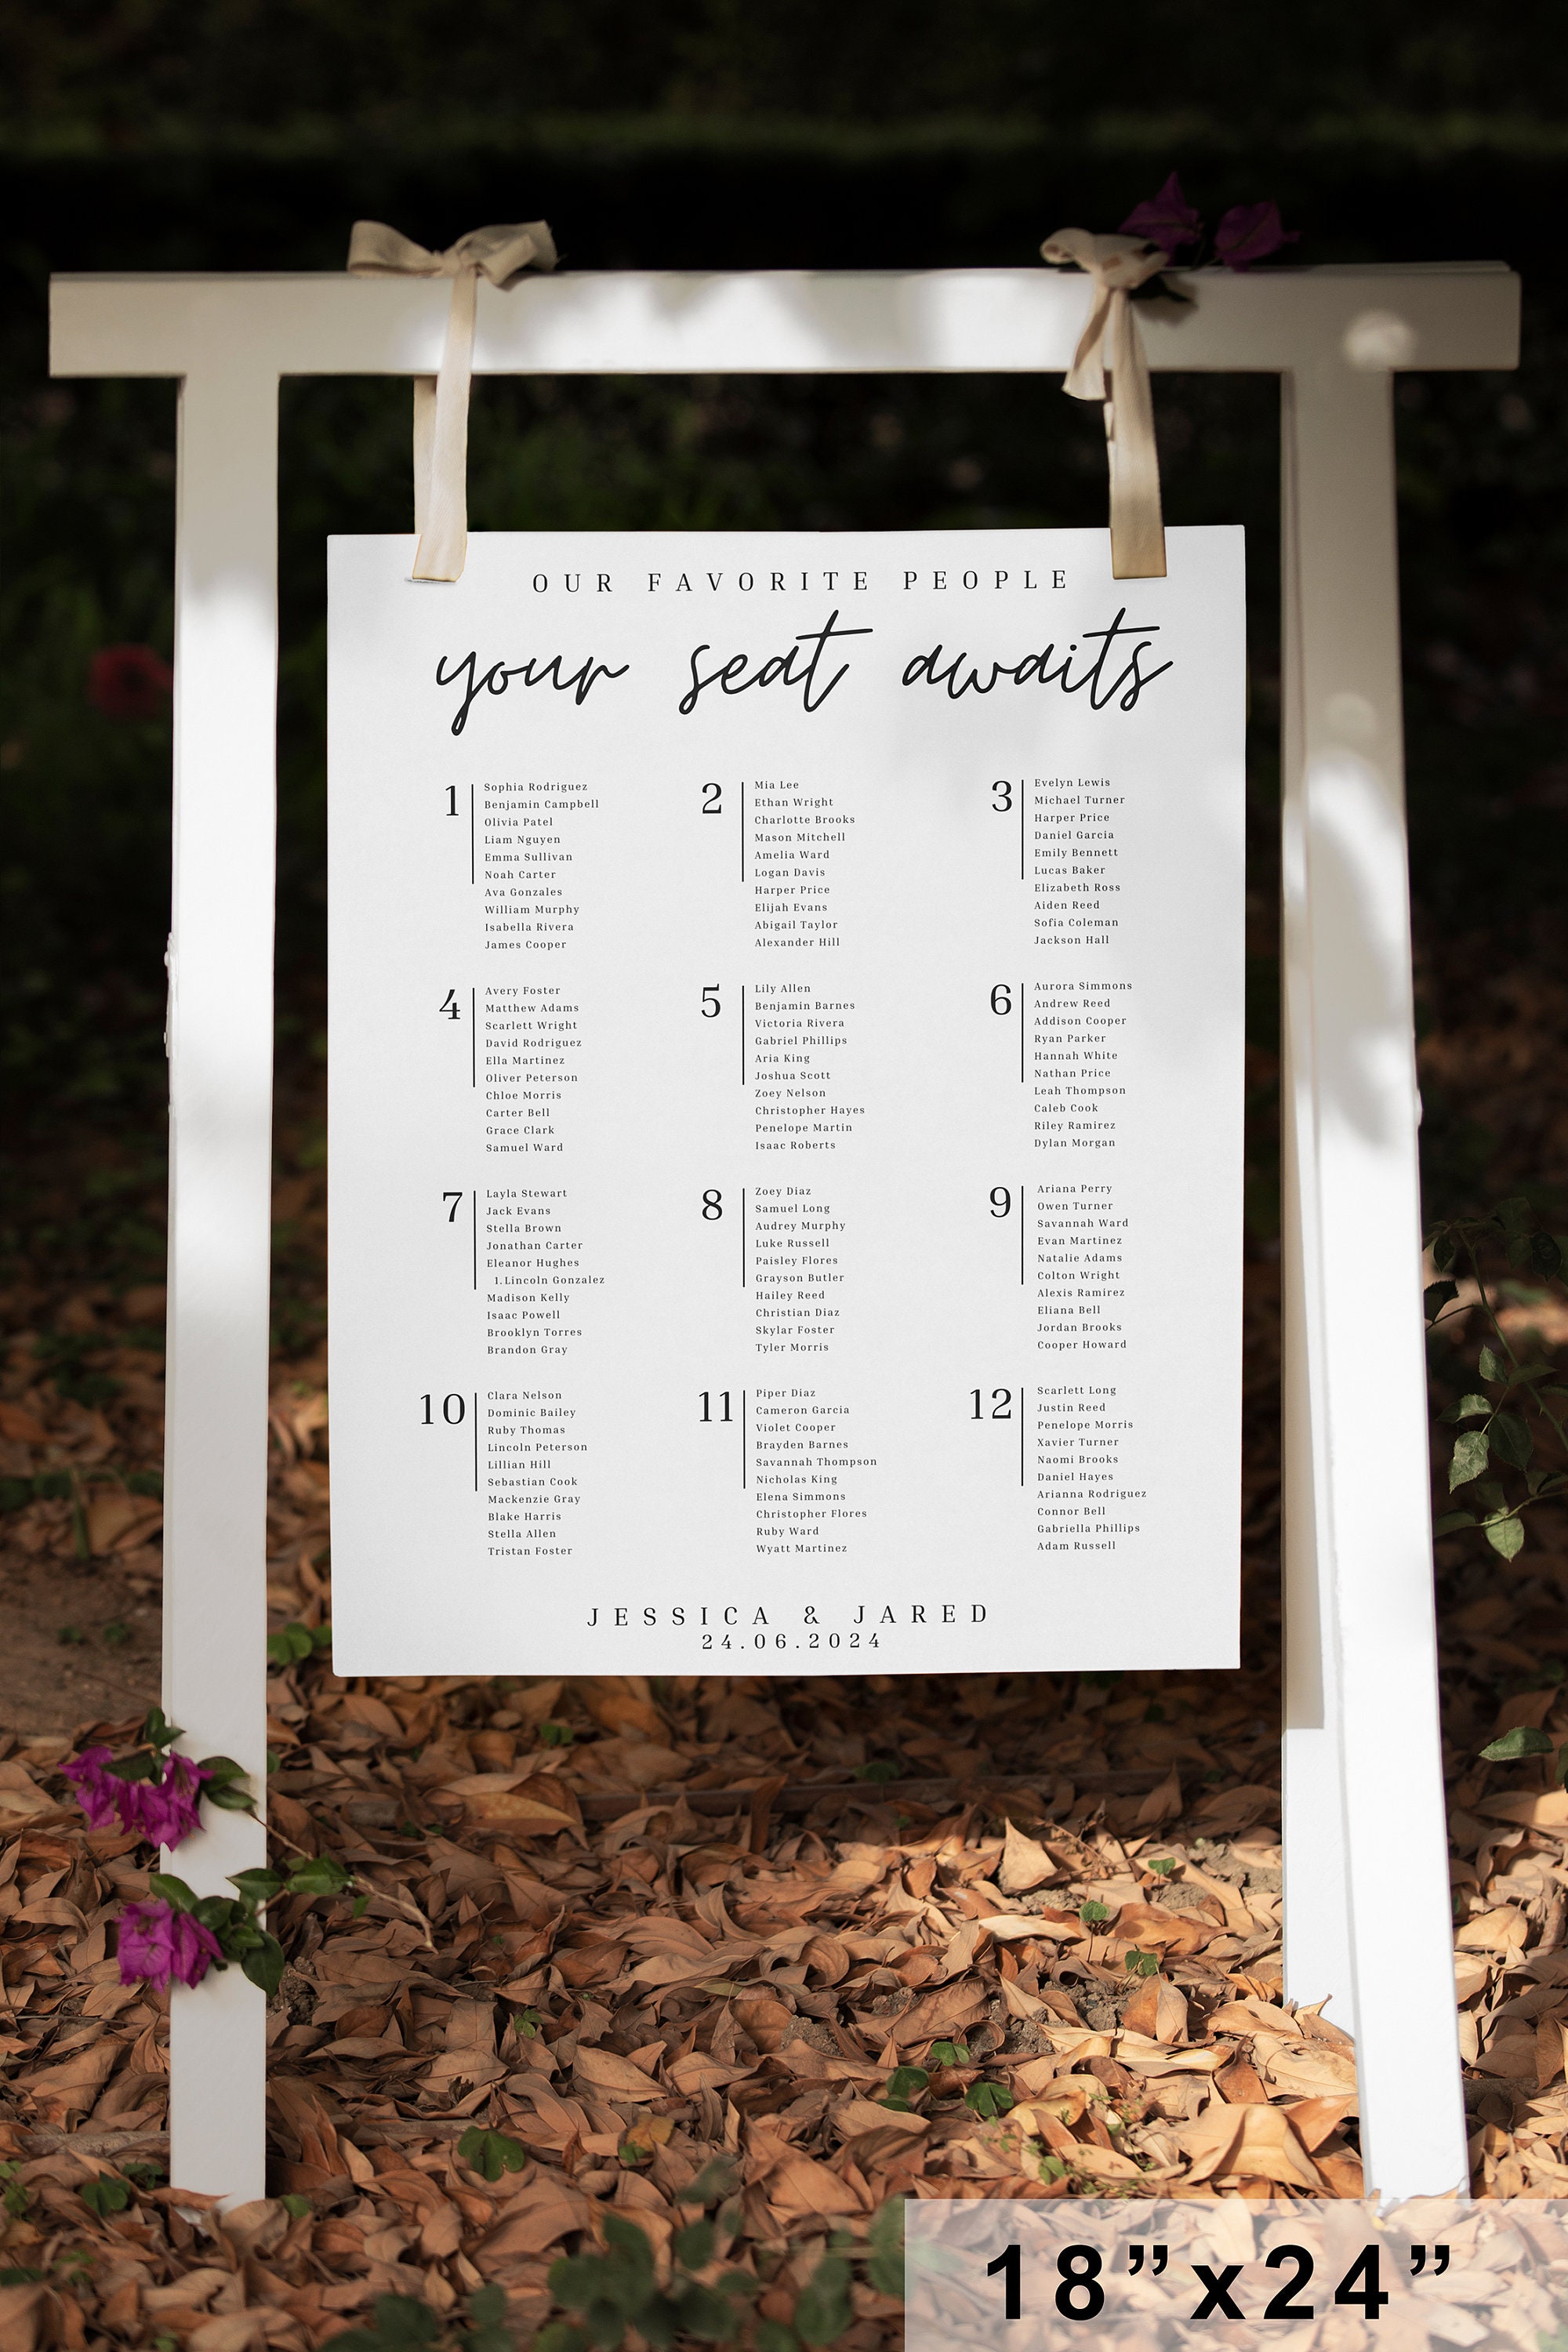 OUR FAVORITE PEOPLE
your seat awaits
1
Sophia Rodriguez
Benjamin Campbell
Olivia Patel
Liam Nguyen
Emma Sullivan
Noah Carter
Ava Gonzales
William Murphy
Isabella Rivera
James Cooper
2
Mia Lee
Ethan Wright
Charlotte Brooks
Mason Mitchell
Amelia Ward
Logan Davis
Harper Price
Elijah Evans
Abigail Taylor
Alexander Hill
3
Evelyn Lewis
Michael Turner
Harper Price
Daniel Garcia
Emily Bennett
Lucas Baker
Elizabeth Ross
Aiden Reed
Sofia Coleman
Jackson Hall
4
Avery Foster
Matthew Adams
Scarlett Wright
David Rodriguez
Ella Martinez
Oliver Peterson
Chloe Morris
Carter Bell
Grace Clark
Samuel Ward
5
Lily Allen
Benjamin Barnes
Victoria Rivera
Gabriel Phillips
Aria King
Joshua Scott
Zoey Nelson
Christopher Hayes
Penelope Martin
Isaac Roberts
6
Aurora Simmons
Andrew Reed
Addison Cooper
Ryan Parker
Hannah White
Nathan Price
Leah Thompson
Caleb Cook
Riley Ramirez
Dylan Morgan
7
Layla Stewart
Jack Evans
Stella Brown
Jonathan Carter
Eleanor Hughes
1. Lincoln Gonzalez
Madison Kelly
Isaac Powell
Brooklyn Torres
Brandon Gray
8
Zoey Diaz
Samuel Long
Audrey Murphy
Luke Russell
Paisley Flores
Grayson Butler
Hailey Reed
Christian Diaz
Skylar Foster
Tyler Morris
9
Ariana Perry
Owen Turner
Savannah Ward
Evan Martinez
Natalie Adams
Colton Wright
Alexis Ramirez
Eliana Bell
Jordan Brooks
Cooper Howard
10
Clara Nelson
Dominic Bailey
Ruby Thomas
Lincoln Peterson
Lillian Hill
Sebastian Cook
Mackenzie Gray
Blake Harris
Stella Allen
Tristan Foster
11
Piper Diaz
Cameron Garcia
Violet Cooper
Brayden Barnes
Savannah Thompson
Nicholas King
Elena Simmons
Christopher Flores
Ruby Ward
Wyatt Martinez
12
Scarlett Long
Justin Reed
Penelope Morris
Xavier Turner
Naomi Brooks
Daniel Hayes
Arianna Rodriguez
Connor Bell
Gabriella Phillips
Adam Russell
JESSICA & JARED
24.06.2024
18”x24”